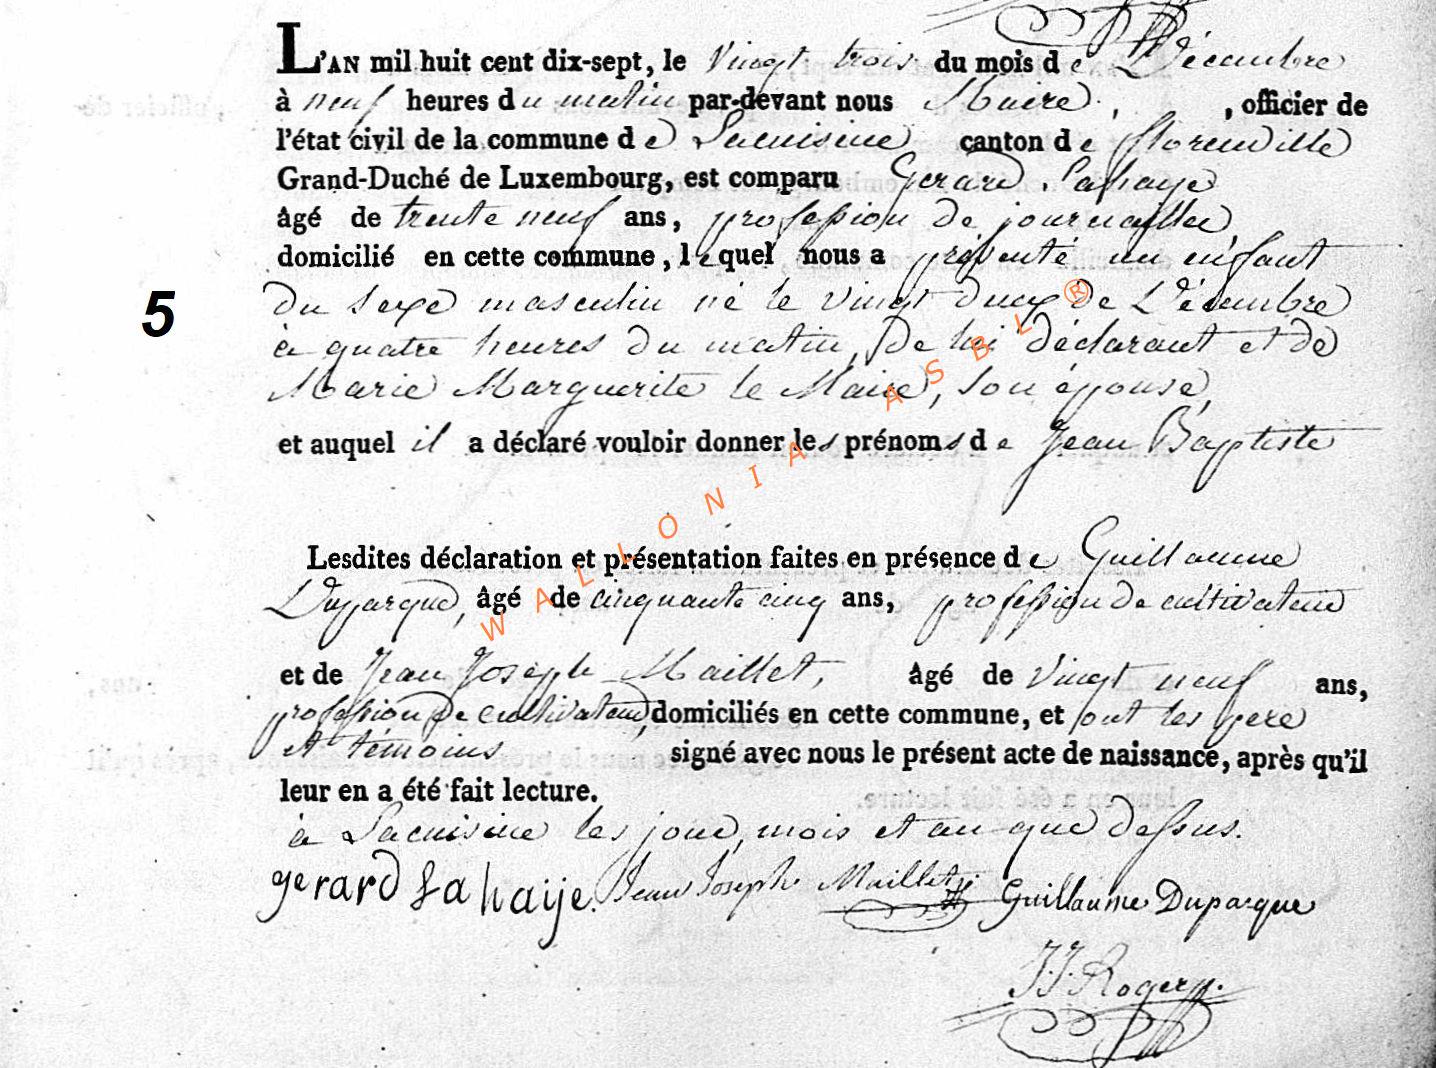 L'AN mil huit cent dix-sept, le Vingt trois du mois de Décembre
à neuf heures du matin par-devant nous Maire, , officier de
l'état civil de la commune de Lacuisine canton de florenville
Grand-Duché de Luxembourg, est comparu Gerard Lahaye
âgé de trente neuf ans, profession de journallier,
domicilié en cette commune, lequel nous a présenté un enfant
5
du sexe masculin né le vingt deux de Décembre
à quatre heures du matin, de lui déclarant et de
Marie Marguerite le Maire, son épouse,
et auquel il a déclaré vouloir donner les prénoms de Jean Baptiste
Lesdites déclaration et présentation faites en présence de Guillaume
Duparque, âgé de cinquante cinq ans, profession de cultivateur
et de Jean Joseph Maillet, âgé de Vingt neuf ans,
profession de cultivateur, domiciliés en cette commune, et ont les pere
et témoins signé avec nous le présent acte de naissance, après qu'il
leur en a été fait lecture.
à Lacuisine les jour, mois et an que dessus.
gerard Lahaije. Jean Joseph Maillet Guillaume Duparque
J.J. Roger
WALLONIA ASBL ®